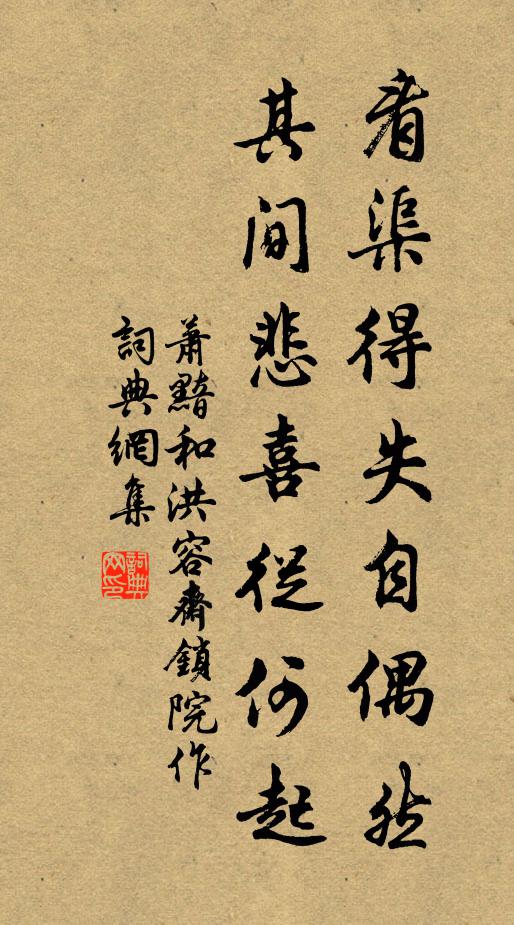 看渠得失自偶然
其间悲喜從何起
萧黯和洪容齋鎖院作
詞典網集
詞典網印